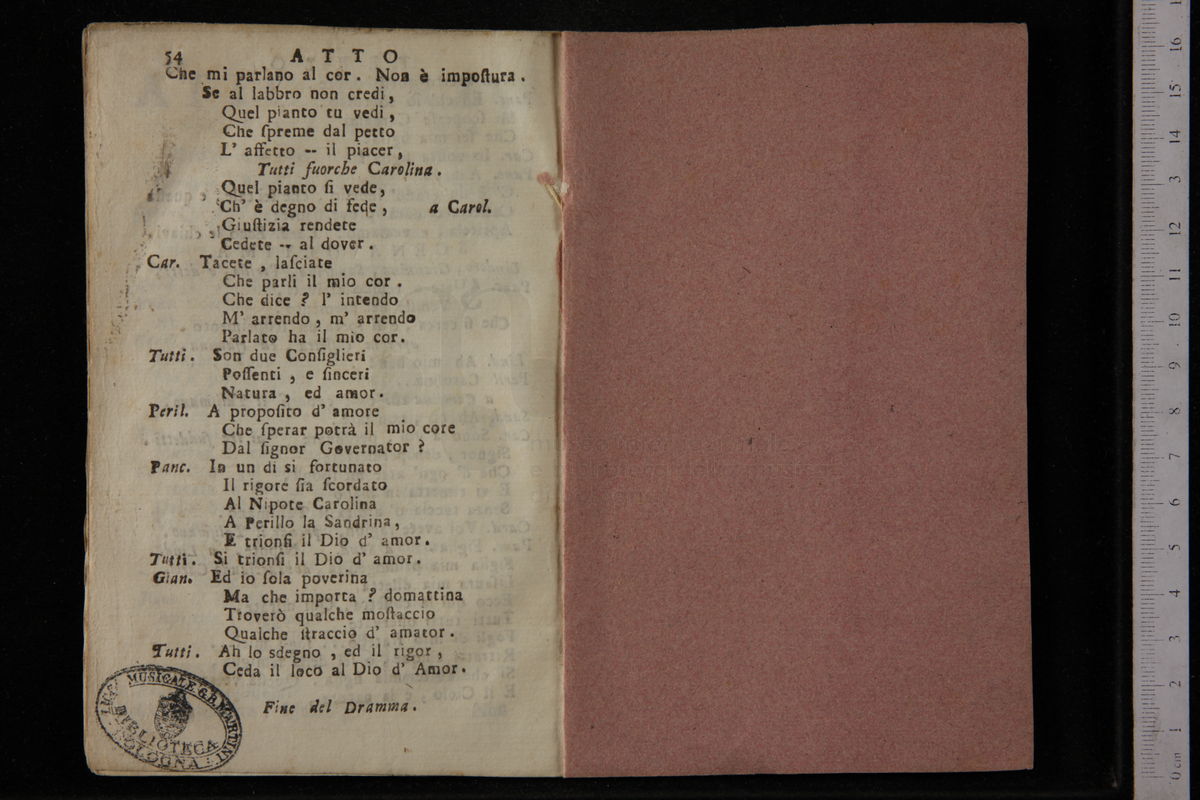 54 ATTO
Che mi parlano al cor. Non è impoſtura.
Se al labbro non credi,
Quel pianto tu vedi,
Che ſpreme dal petto
L' affetto -- il piacer,
Tutti fuorche Carolina.
Quel pianto ſi vede,
Ch' è degno di fede, a Carol.
Giuſtizia rendete
Cedete -- al dover.
Car. Tacete, laſciate
Che parli il mio cor.
Che dice? l' intendo
M' arrendo, m' arrendo
Parlato ha il mio cor.
Tutti. Son due Conſiglieri
Poſſenti, e ſinceri
Natura, ed amor.
Peril. A propoſito d' amore
Che ſperar potrà il mio core
Dal ſignor Governator?
Panc. In un di si fortunato
Il rigore ſia ſcordato
Al Nipote Carolina
A Perillo la Sandrina,
E trionfi il Dio d' amor.
Tutti. Si trionfi il Dio d' amor.
Gian. Ed io ſola poverina
Ma che importa? domattina
Troverò qualche moſtaccio
Qualche ſtraccio d' amator.
Tutti. Ah lo sdegno, ed il rigor,
Ceda il loco al Dio d' Amor.
Fine del Dramma.
MUSICALE G.B. MARTINI
BIBLIOTECA
BOLOGNA
0 cm 1 2 3 4 5 6 7 8 9 10 11 12 3 14 15 16